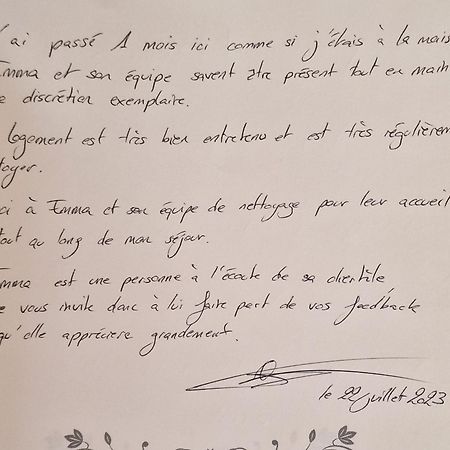 'ai passé 1 mois ici comme si j'étais à la mais
Emma et son équipe savent être présent tout en main
e discrétion exemplaire.
logement est très bien entretenu et est très régulièrem
toyer.
ci à Emma et son équipe de nettoyage pour leur accueil
tout au long de mon séjour.
Emma est une personne à l'écoute de sa clientèle,
e vous invite donc à lui faire part de vos feedback
qu'elle appréciera grandement.
le 22 juillet 2023